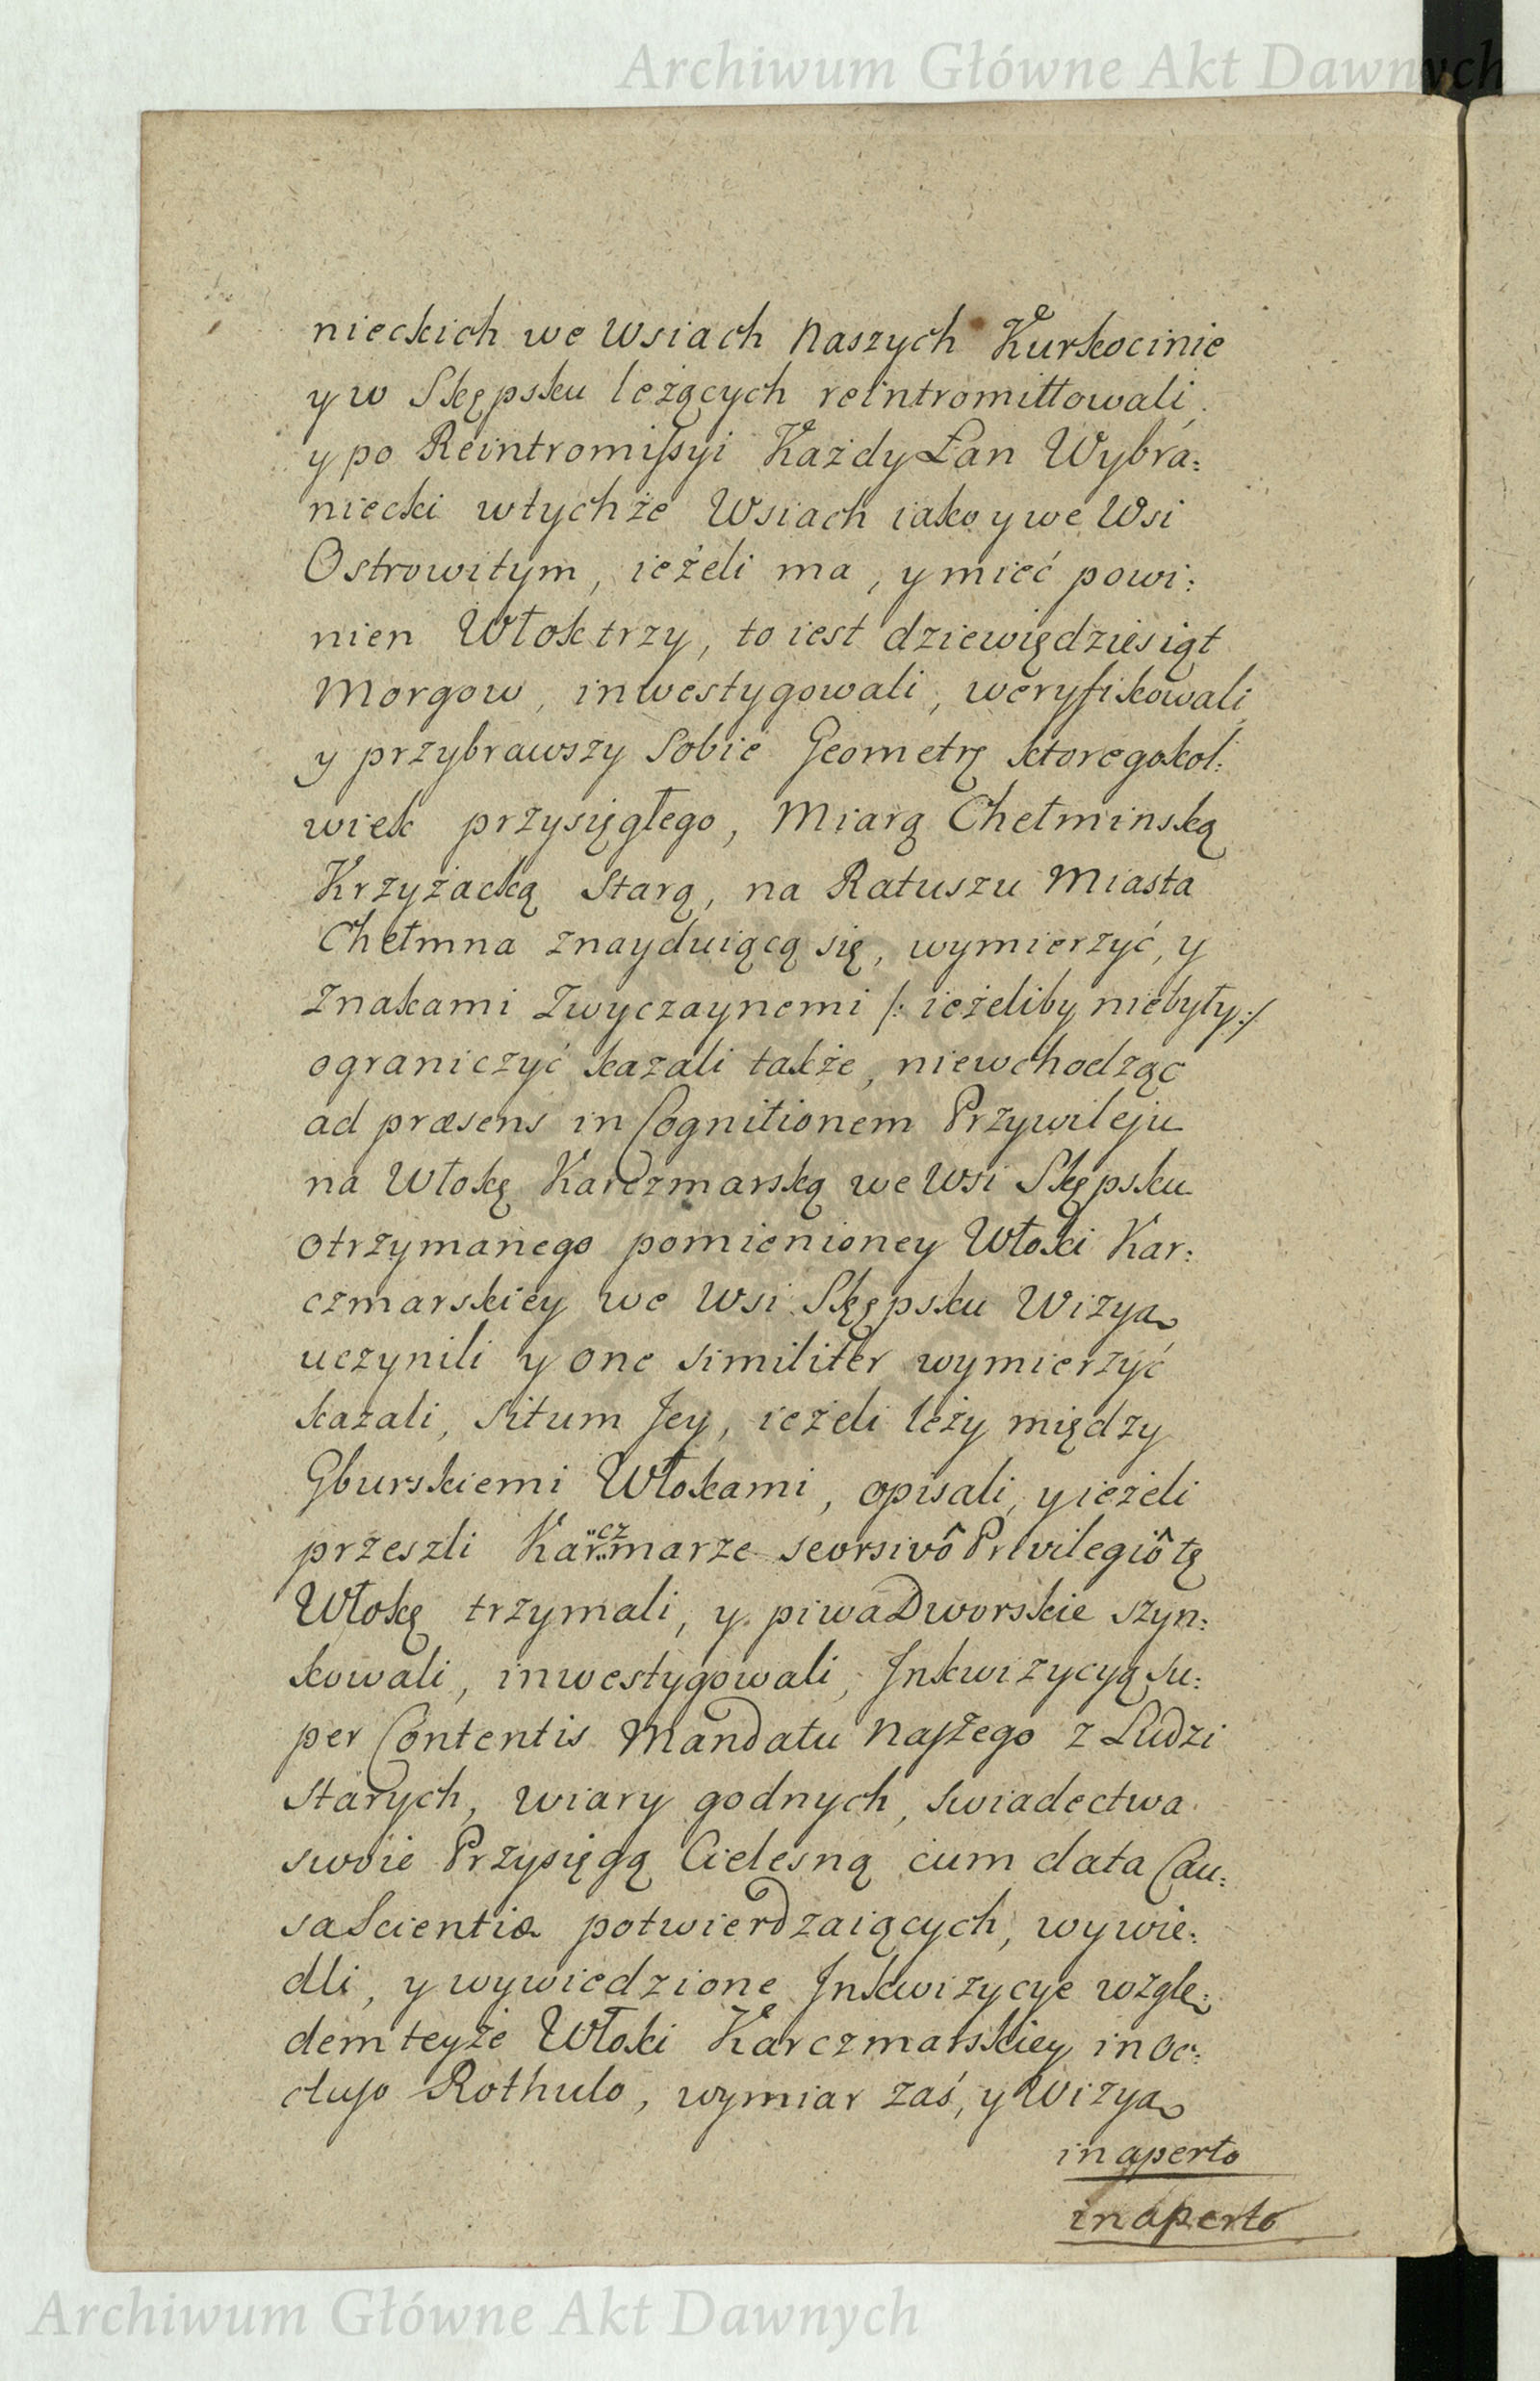 Archiwum Główne Akt Dawnych
nieckich we Wsiach Naszych Kurkocinie
y w Skępsku leżących reintromittowali
y po Reintromissyi Każdy Łan Wybra:
niecki w tychże Wsiach iako y we Wsi
Ostrowitym, ieżeli ma, y mieć powi:
nien Włok trzy, to iest dziewiędziesiąt
Morgow, inwestygowali, weryfikowali,
y przybrawszy Sobie Geometrę ktoregokol:
wiek przysięgłego, Miarą Chełminską
Krzyżacką Starą, na Ratuszu Miasta
Chełmna znayduiącą się, wymierzyć, y
Znakami Zwyczaynemi /: ieżeliby niebyły :/
ograniczyć kazali także, niewchodząc
ad præsens in Cognitionem Przywileju
na Włokę Karczmarską we Wsi Skępsku
otrzymanego pomienioney Włoki Kar:
czmarskiey we Wsi Skępsku Wizyą
uczynili y one similiter wymierzyć
kazali, situm Jey, ieżeli leży między
Gburskiemi Włokami, opisali, y ieżeli
przeszli Karczmarze seorsivô Privilegiô tę
Włokę trzymali, y piwa Dworskie szyn:
kowali, inwestygowali, Inkwizycyą su:
per Contentis Mandatu Naszego z Ludzi
starych, wiary godnych, swiadectwa
swoie Przysięgą Cielesną cum data Cau:
sa Scientiæ potwierdzaiących, wywie:
dli, y wywiedzione Inkwizycye wzglę:
dem teyże Włoki Karczmarskiey in oc:
cluso Rothulo, wymiar zaś, y Wizyą
in aperto
in aperto
Archiwum Główne Akt Dawnych